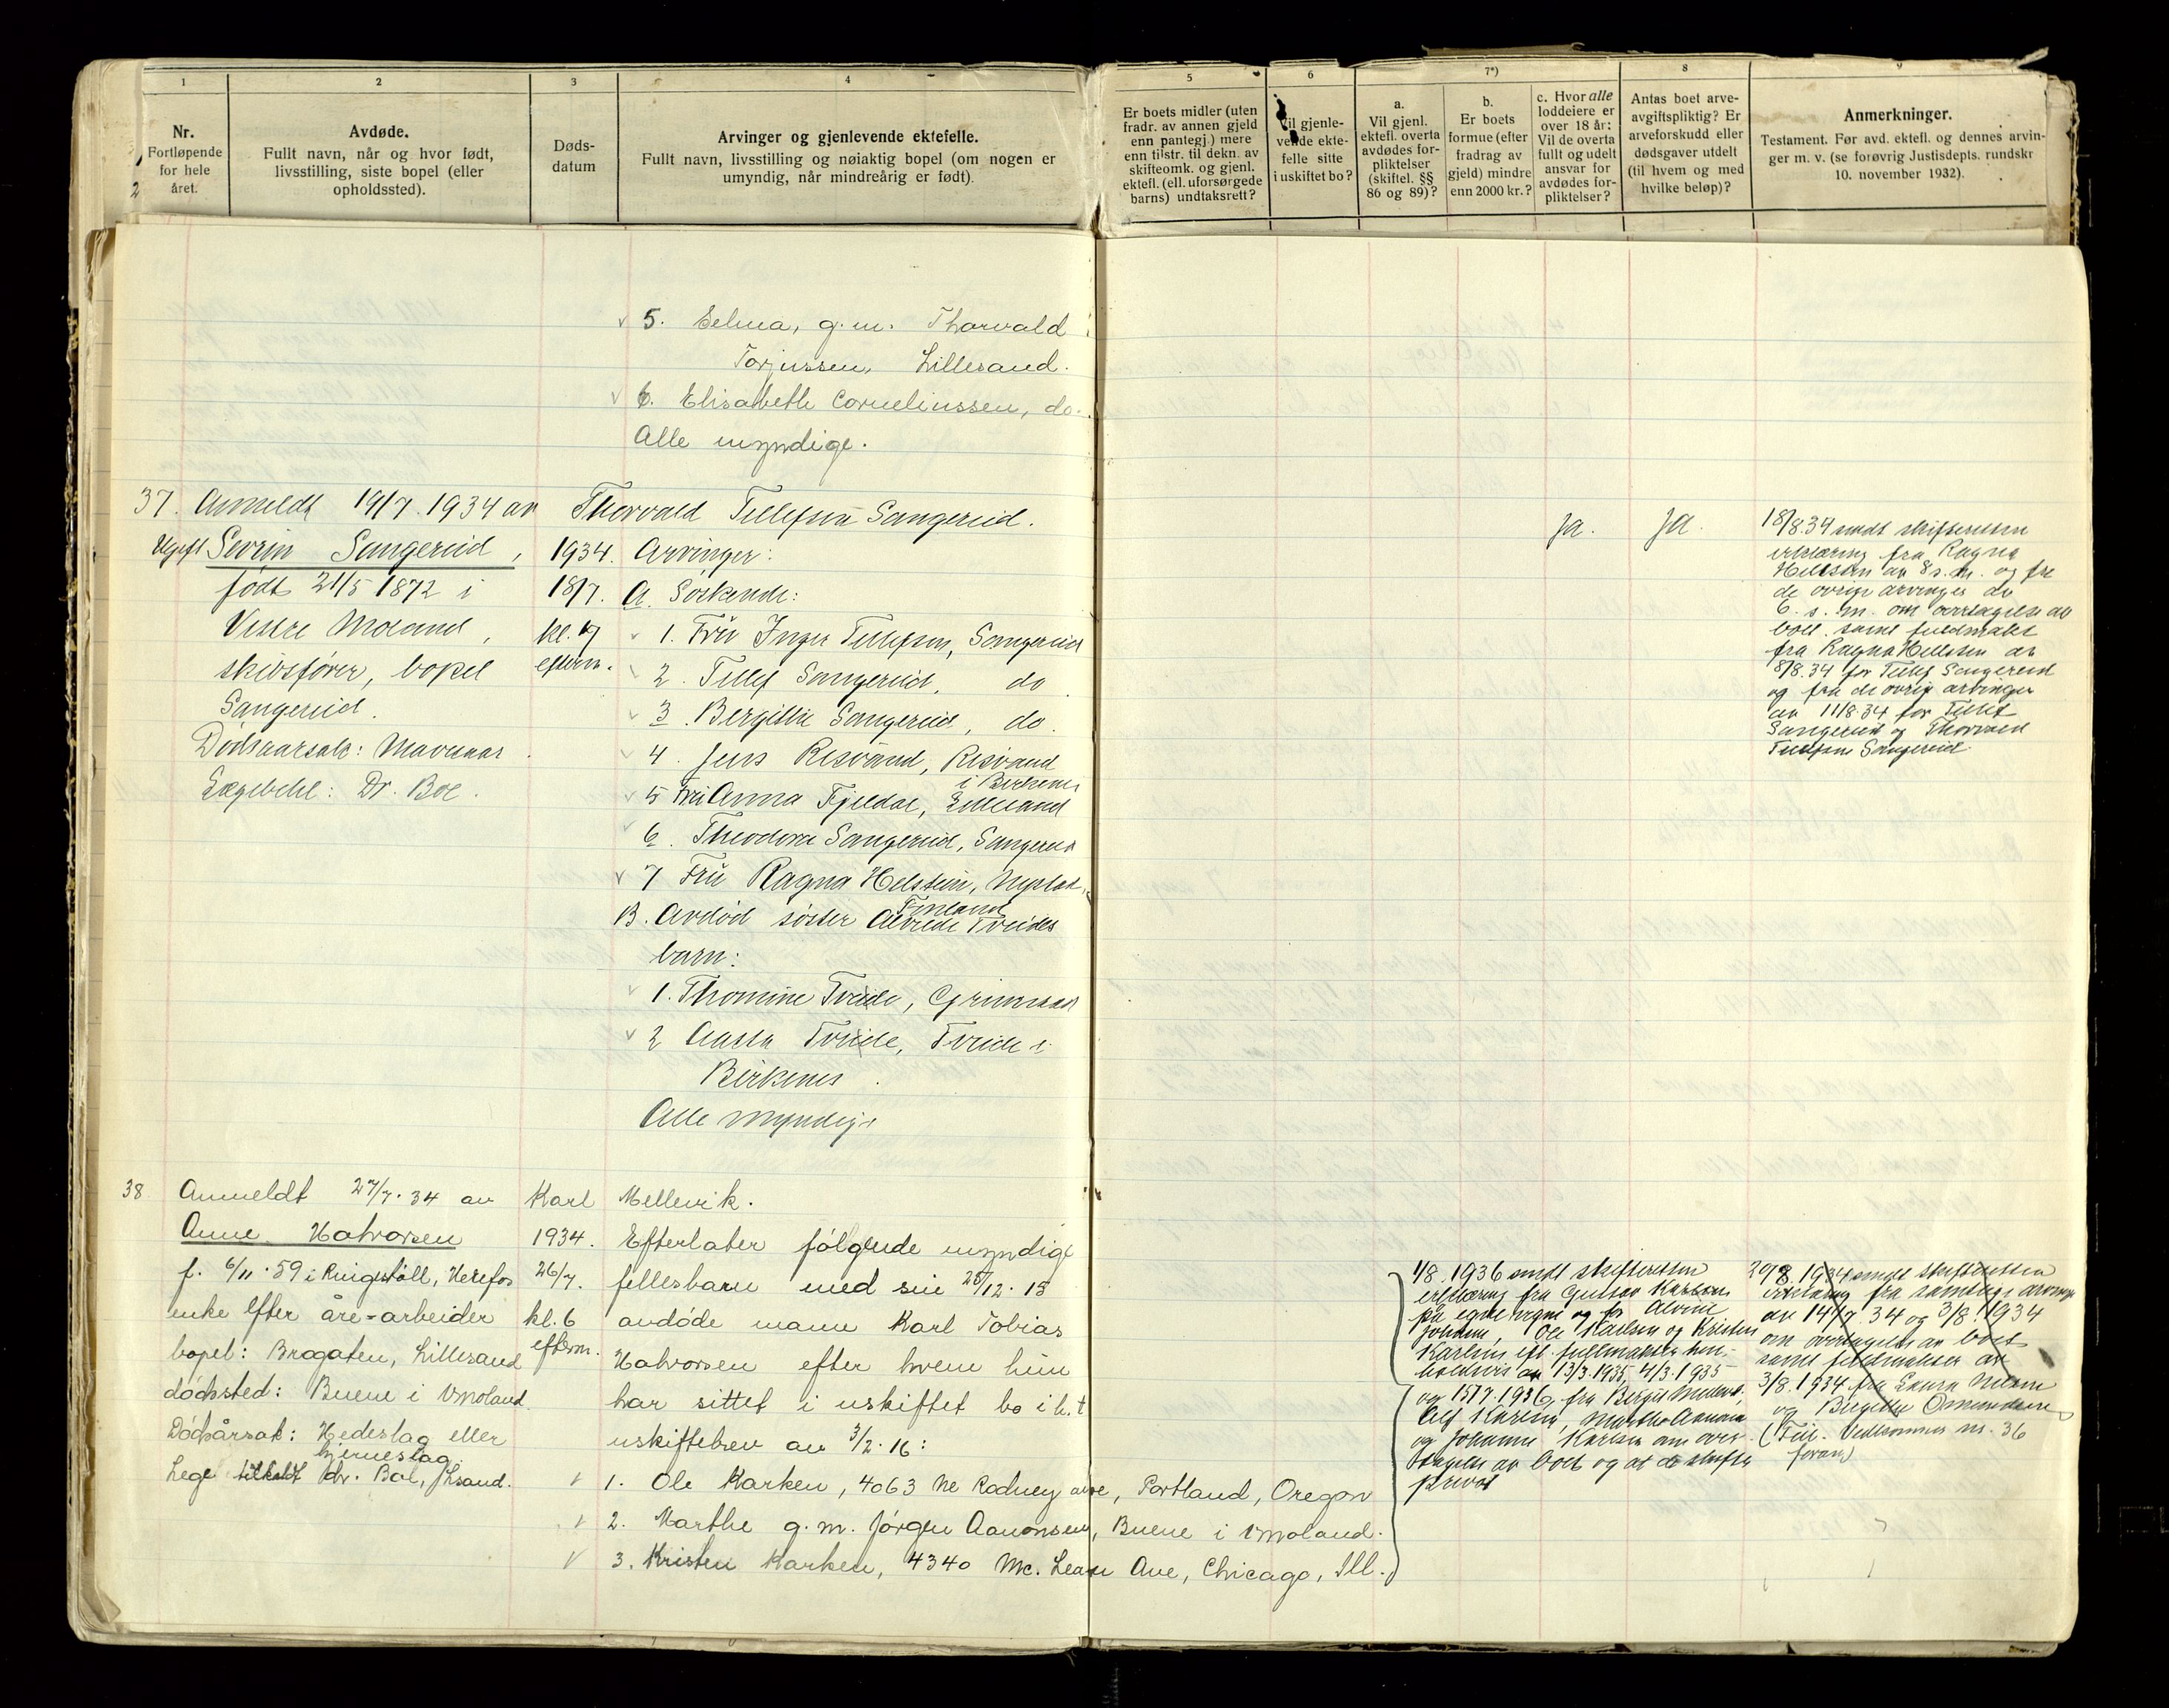 1
2
3
4
5
6
7*)
8
9
Nr.
Fortløpende
for hele
året.
Avdøde.
Fullt navn, når og hvor født,
livsstilling, siste bopel (eller
opholdssted).
Døds-
datum
Arvinger og gjenlevende ektefelle.
Fullt navn, livsstilling og nøiaktig bopel (om nogen er
umyndig, når mindreårig er født).
Er boets midler (uten
fradr. av annen gjeld
enn pantegj.) mere
enn tilstr. til dekn. av
skifteomk. og gjenl.
ektefl. (ell. uforsørgede
barns) undtaksrett?
Vil gjenle-
vende ekte-
felle sitte
i uskiftet bo?
a.
Vil gjenl.
ektefl. overta
avdødes for-
pliktelser
(skiftel. §§
86 og 89)?
b.
Er boets
formue (efter
fradrag av
gjeld) mindre
enn 2000 kr.?
c. Hvor alle
loddeiere er
over 18 år:
Vil de overta
fullt og udelt
ansvar for
avdødes for-
pliktelser?
Antas boet arve-
avgiftspliktig? Er
arveforskudd eller
dødsgaver utdelt
(til hvem og med
hvilke beløp)?
Anmerkninger.
Testament. Før avd. ektefl. og dennes arvin-
ger m. v. (se forøvrig Justisdepts. rundskr
10. november 1932).
5. Selma, g.m. Thorvald
Torjussen, Lillesand.
6. Elisabeth Corneliussen, do.
Alle myndige.
37. Anmeldt 19/7.1934 av Thorvald Tellefsen Sangereid.
Ugift Severin Sangereid,
født 21/5 1872 i
Vestre Moland,
skibsfører, bopel
Sangereid.
Dødsaarsak: Mavesaar.
Lægebeh: Dr. Boe.
1934.
18/7.
kl. 7
efterm.
Arvinger:
A. Søskende:
1. Fru Inger Tellefsen, Sangereid
2. Tellef Sangereid, do.
3. Bergitte Sangereid, do.
4. Jens Risvand, Risvand
i Birkenes
5 Fru Anna Fjeldal, Lillesand
6. Theodora Sangereid, Sangereid
7 Fru Ragna Helsten, Nystad,
Finland
B. Avdød søster Alvilde Tveides
barn:
1. Thomine Tveide, Grimstad
2 Aasta Tveide, Tveide i
Birkenes.
Alle myndige
Ja.
Ja.
18/8.34 sendt skifteretten
erklæring fra Ragna
Helsten av 8 s.m. og fra
de øvrige arvinger av
6. s.m. om overtagelse av
boet. samt fuldmakt
fra Ragna Helsten av
8/8.34 for Tellef Sangereid
og fra de øvrige arvinger
av 11/8.34 for Tellef
Sangereid og Thorvald
Tellefsen Sangereid.
38 Anmeldt 27/7.34 av Karl Mellevik.
Anne Halvorsen
f. 6/11.59 i Ringstøll, Herefos
enke efter åre-arbeider
bopel: Brogaten, Lillesand
dødssted: Buene i Vmoland.
Dødsårsak: Hedeslag eller
hjerneslag.
Lege tilkaldt dr. Boe, Lsand.
1934.
26/7.
kl. 6
efterm.
Efterlater følgende myndige
fellesbarn med sin 25/12.15
avdøde mann Karl Tobias
Halvorsen efter hvem hun
har sittet i uskiftet bo i h. t
uskiftebrev av 3/2.16:
1. Ole Karlsen, 4063 Ne Rodney ave, Portland, Oregon
2. Marthe g.m. Jørgen Aanonsen, Buene i Vmoland.
3. Kristen Karlsen, 4340 Mc. Lean Ave, Chicago, Ill.
1/8.1936 sendt skifteretten
erklæring fra Gustav Karlsen
på egne vegne og for Alvine
Johanne, Ole Karlsen og Kristen
Karlsen efl. fullmakter hen-
holdsvis av 13/3.1935, 4/3.1935
og 15/7.1936, fra Birgit
Alf Karlsen, Marthe Aanonsen
og Johanne Karlsen om over-
tagelse av boet og at de skifter
privat
29/8.1934 sendt skifteretten
erklæring fra samtlige arvinger
av 14/7 34 og 3/8.1934
om overtagelse av boet
samt fuldmakter av
3/8.1934 fra Laura
og Birgitte Omundsen
(Feil. Vedkommer nr. 36
foran)